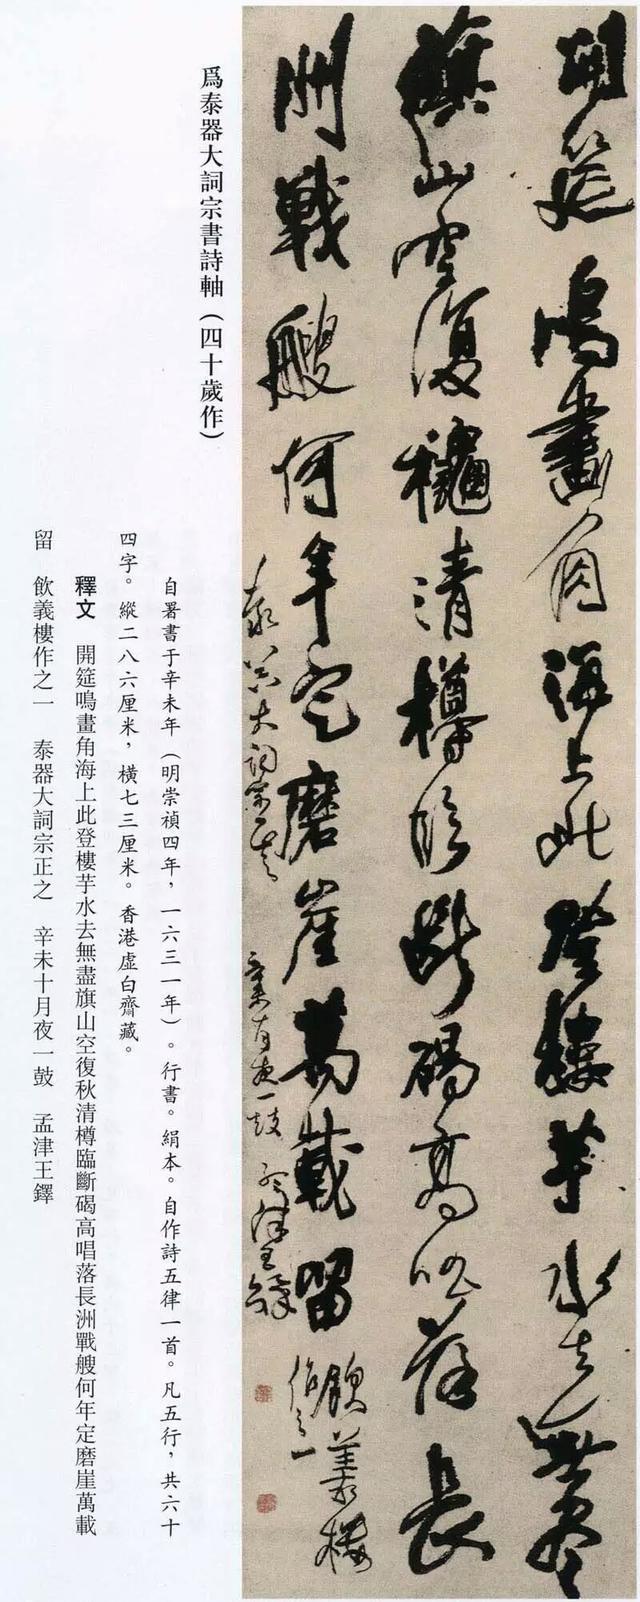 開筵鳴畫角海上此登樓芋水去無盡
旗山空復穐清樽臨斷碣高唱落長
洲戰艘何年定磨崖萬載留
飲義樓
作之一
泰器大詞宗正之
辛未十月夜一鼓 孟津王鐸
爲泰器大詞宗書詩軸（四十歲作）
自署書于辛未年（明崇禎四年，一六三一年）。行書。絹本。自作詩五律一首。凡五行，共六十
四字。縱二八六厘米，橫七三厘米。香港虛白齋藏。
釋文 開筵鳴畫角海上此登樓芋水去無盡旗山空復秋清樽臨斷碣高唱落長洲戰艘何年定磨崖萬載
留 飲義樓作之一 泰器大詞宗正之 辛未十月夜一鼓 孟津王鐸